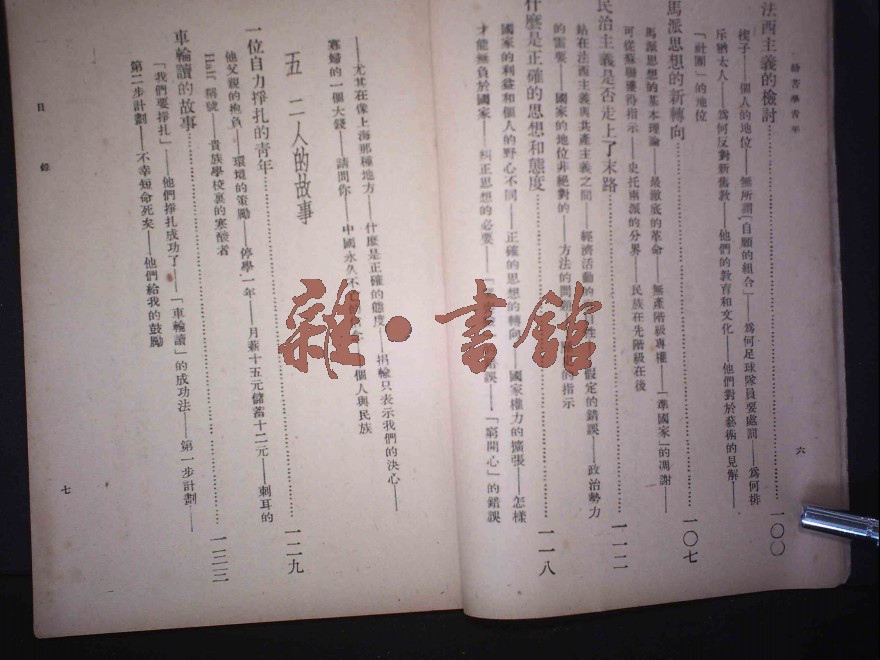 給苦學青年
六
法西主義的檢討……一〇〇
楔子——個人的地位——無所謂「自願的組合」——爲何足球隊員要處罰——爲何排
斥猶太人——爲何反對新舊教——他們的教育和文化——他們對於藝術的見解——
「社團」的地位
馬派思想的新轉向……一〇七
馬派思想的基本理論——最澈底的革命——無產階級專權——「準國家」的凋謝——
可從蘇聯獲得指示——史托兩派的分界——民族在先階級在後
民治主義是否走上了末路……一一二
站在法西主義與共產主義之間——經濟活動的 假定的錯誤——政治勢力
的需要——國家的地位非絕對的——方法的問題 的指示
什麼是正確的思想和態度……一一八
國家的利益和個人的野心不同——正確的思想的轉向——國家權力的擴張——怎樣
才能無負於國家——糾正思想的必要——「 錯誤——「窮開心」的錯誤
——尤其在像上海那種地方——什麼是正確的態度——捐輸只表示我們的決心——
寡婦的一個大錢——請問你——中國永久不 個人與民族
五 二人的故事
一位自力掙扎的青年……一二九
他父親的抱負——環境的策勵——停學一年——月薪十五元儲蓄十二元——刺耳的
Half 稱號——貴族學校裏的寒酸者
車輪讀的故事……一三三
「我們要掙扎」——他們掙扎成功了——「車輪讀」的成功法——第一步計劃——
第二步計劃——不幸短命死矣——他們給我的鼓勵
目錄
七
雜·書館